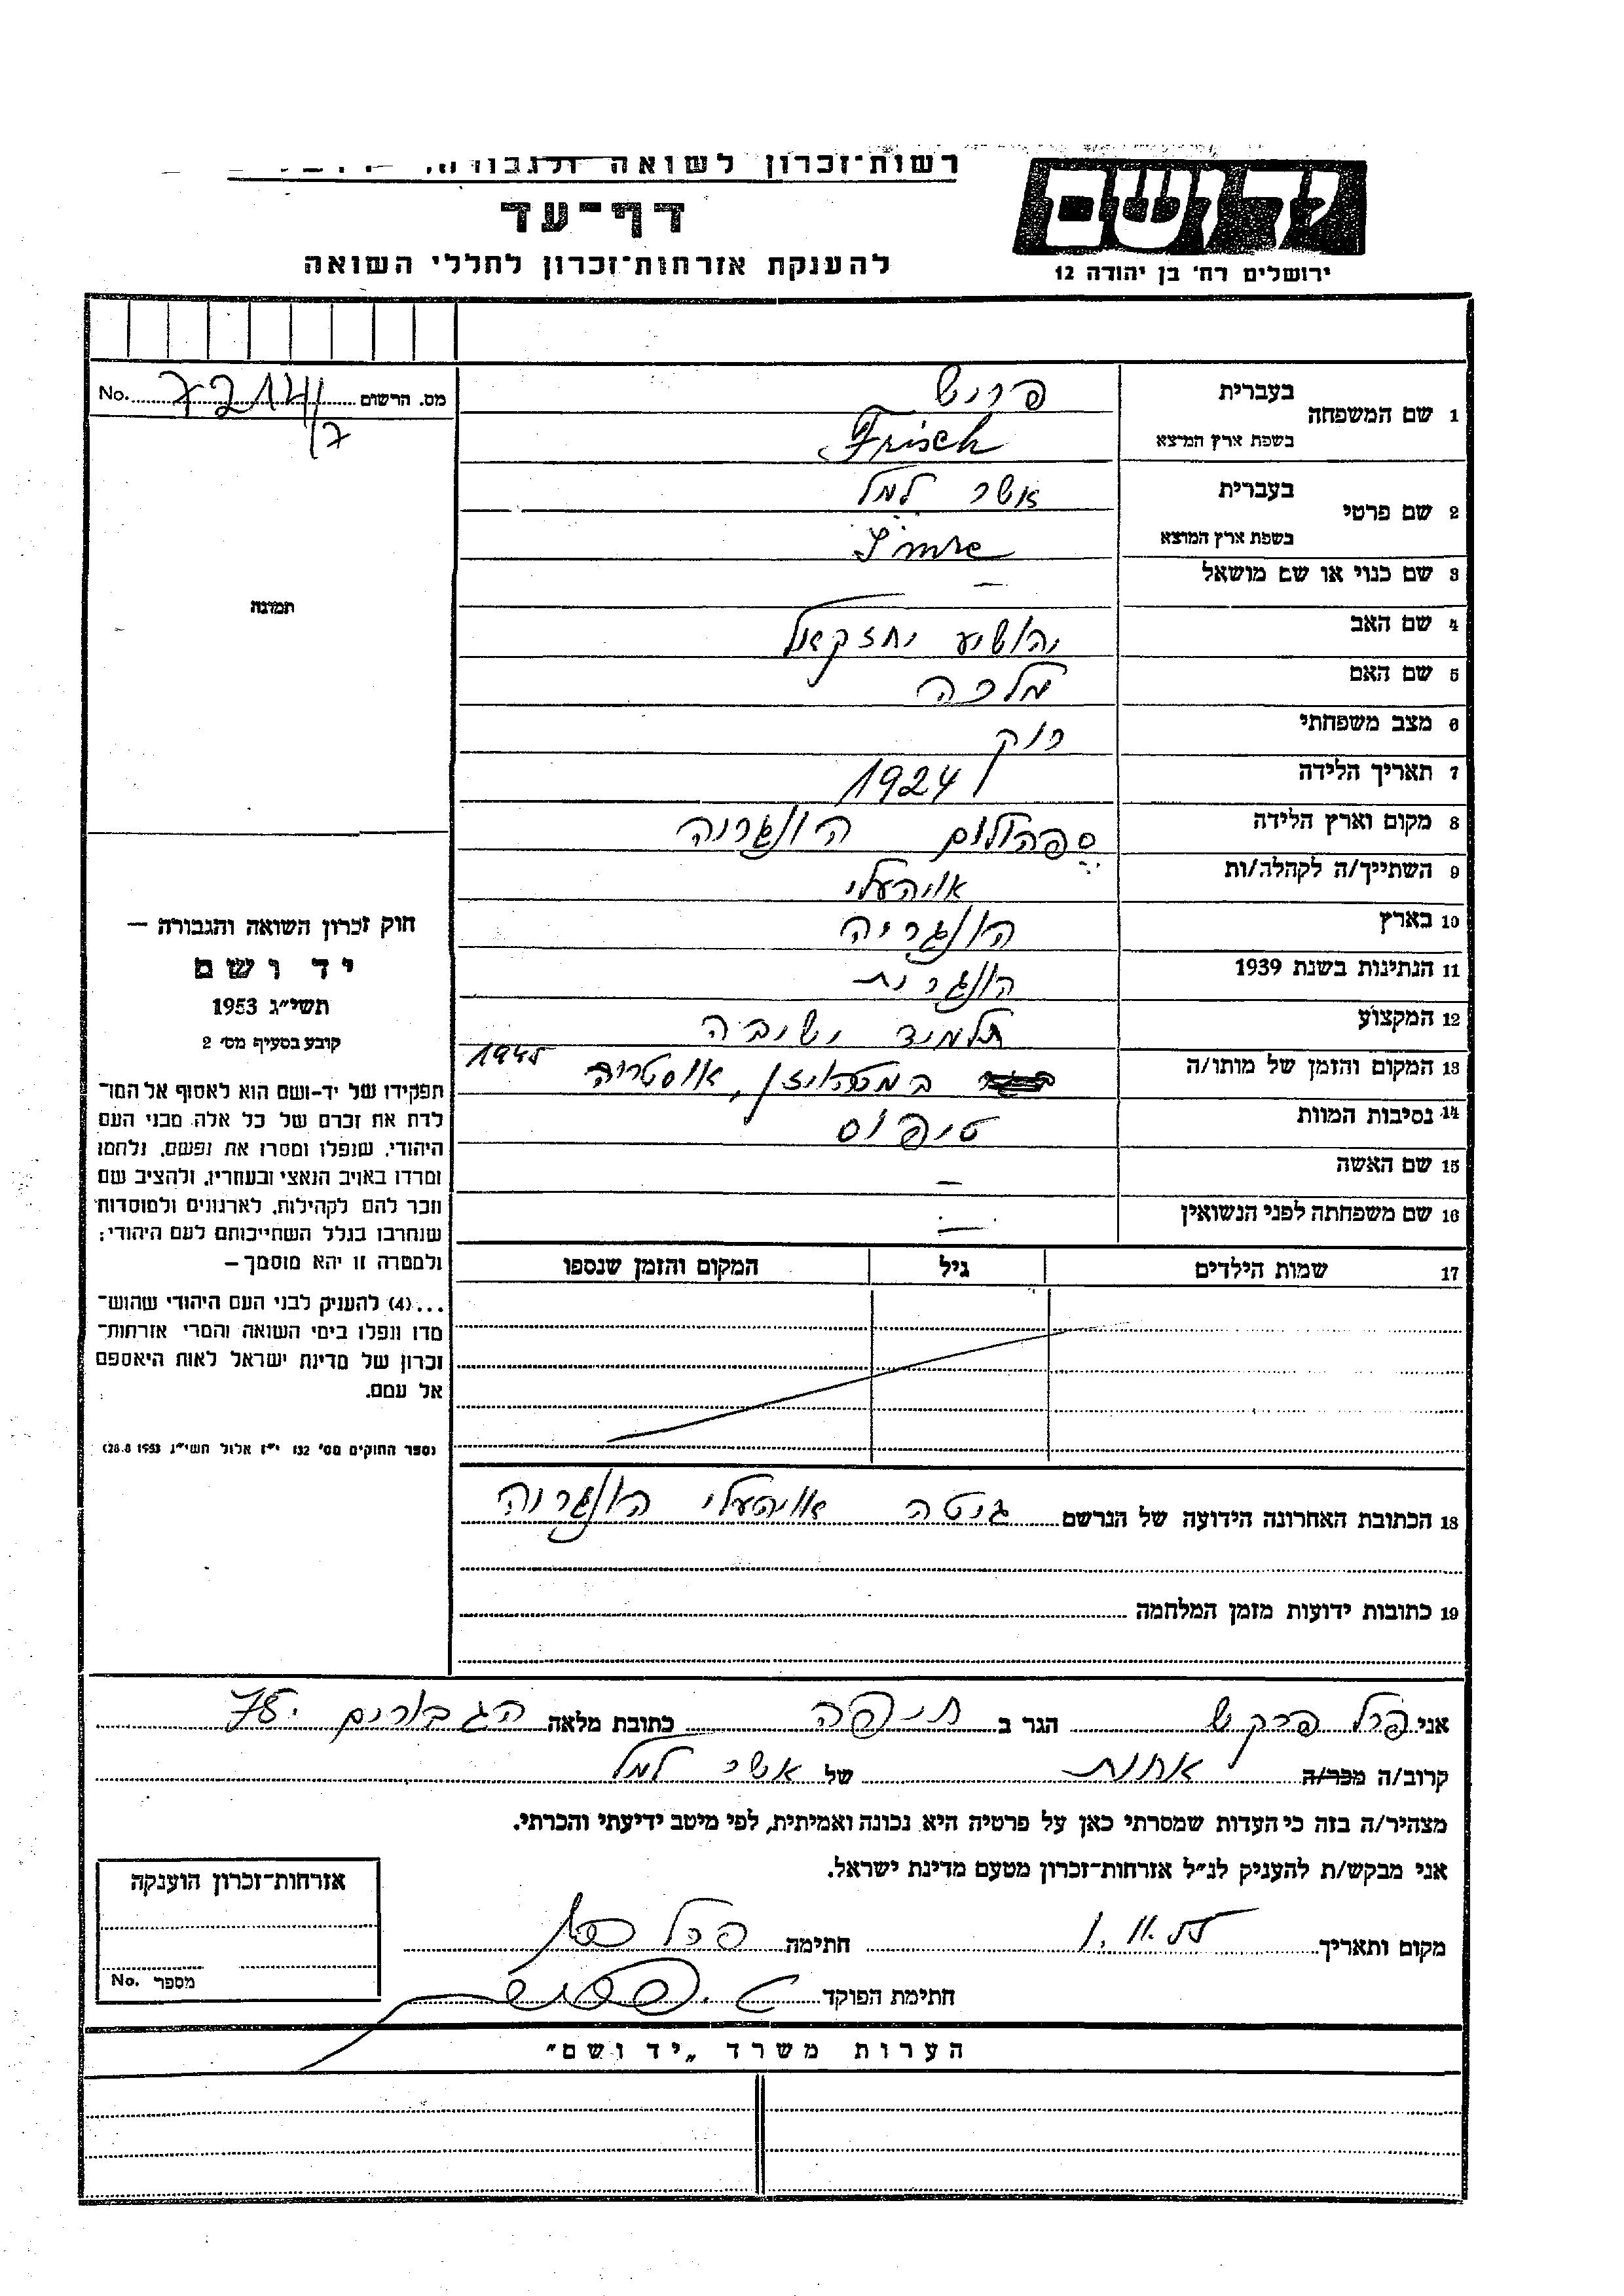 רשות־זכרון לשואה ולגבורה
יד ושם
דף־עד
להענקת אזרחות־זכרון לחללי השואה
ירושלים רח׳ בן יהודה 12
מס. הרשום 7214/7 No.
1 שם המשפחה בעברית פריש
בשפת ארץ המוצא Frisch
2 שם פרטי בעברית אשר למל
בשפת ארץ המוצא Imre
3 שם כנוי או שם מושאל –
4 שם האב יהושע יחזקאל
5 שם האם מלכה
6 מצב משפחתי רוק
7 תאריך הלידה 1924
8 מקום וארץ הלידה הונגריה
9 השתייך/ה לקהלה/ות אויהעלי
10 בארץ הונגריה
11 הנתינות בשנת 1939 הונגרית
12 המקצוע תלמיד ישיבה
13 המקום והזמן של מותו/ה במטהויזן, אוסטריה 1945
14 נסיבות המוות טיפוס
15 שם האשה –
16 שם משפחתה לפני הנשואין –
17 שמות הילדים גיל המקום והזמן שנספו
18 הכתובת האחרונה הידועה של הנרשם אויהעלי הונגריה
19 כתובות ידועות מזמן המלחמה
תמונה
חוק זכרון השואה והגבורה –
יד ושם
תשי״ג 1953
קובע בסעיף מס׳ 2
תפקידו של יד-ושם הוא לאסוף אל המו־
לדת את זכרם של כל אלה מבני העם
היהודי, שנפלו ומסרו את נפשם, נלחמו
ומרדו באויב הנאצי ובעוזריו, ולהציב שם
וזכר להם לקהילות, לארגונים ולמוסדות
שנחרבו בגלל השתייכותם לעם היהודי;
ולמטרה זו יהא מוסמך –
...(4) להעניק לבני העם היהודי שהוש־
מדו ונפלו בימי השואה והמרי אזרחות־
זכרון של מדינת ישראל לאות היאספם
אל עמם.
(ספר החוקים מס׳ 132 י״ז אלול תשי״ג 28.8.1953)
אני פרל הגר ב חיפה כתובת מלאה הגבורים
קרוב/ה מכר/ה אחות של אשר למל
מצהיר/ה בזה כי העדות שמסרתי כאן על פרטיה היא נכונה ואמיתית, לפי מיטב ידיעתי והכרתי.
אני מבקש/ת להעניק לנ״ל אזרחות-זכרון מטעם מדינת ישראל.
מקום ותאריך 1.11.55 חתימה
חתימת הפוקד
אזרחות-זכרון הוענקה
מספר No.
הערות משרד „יד ושם״